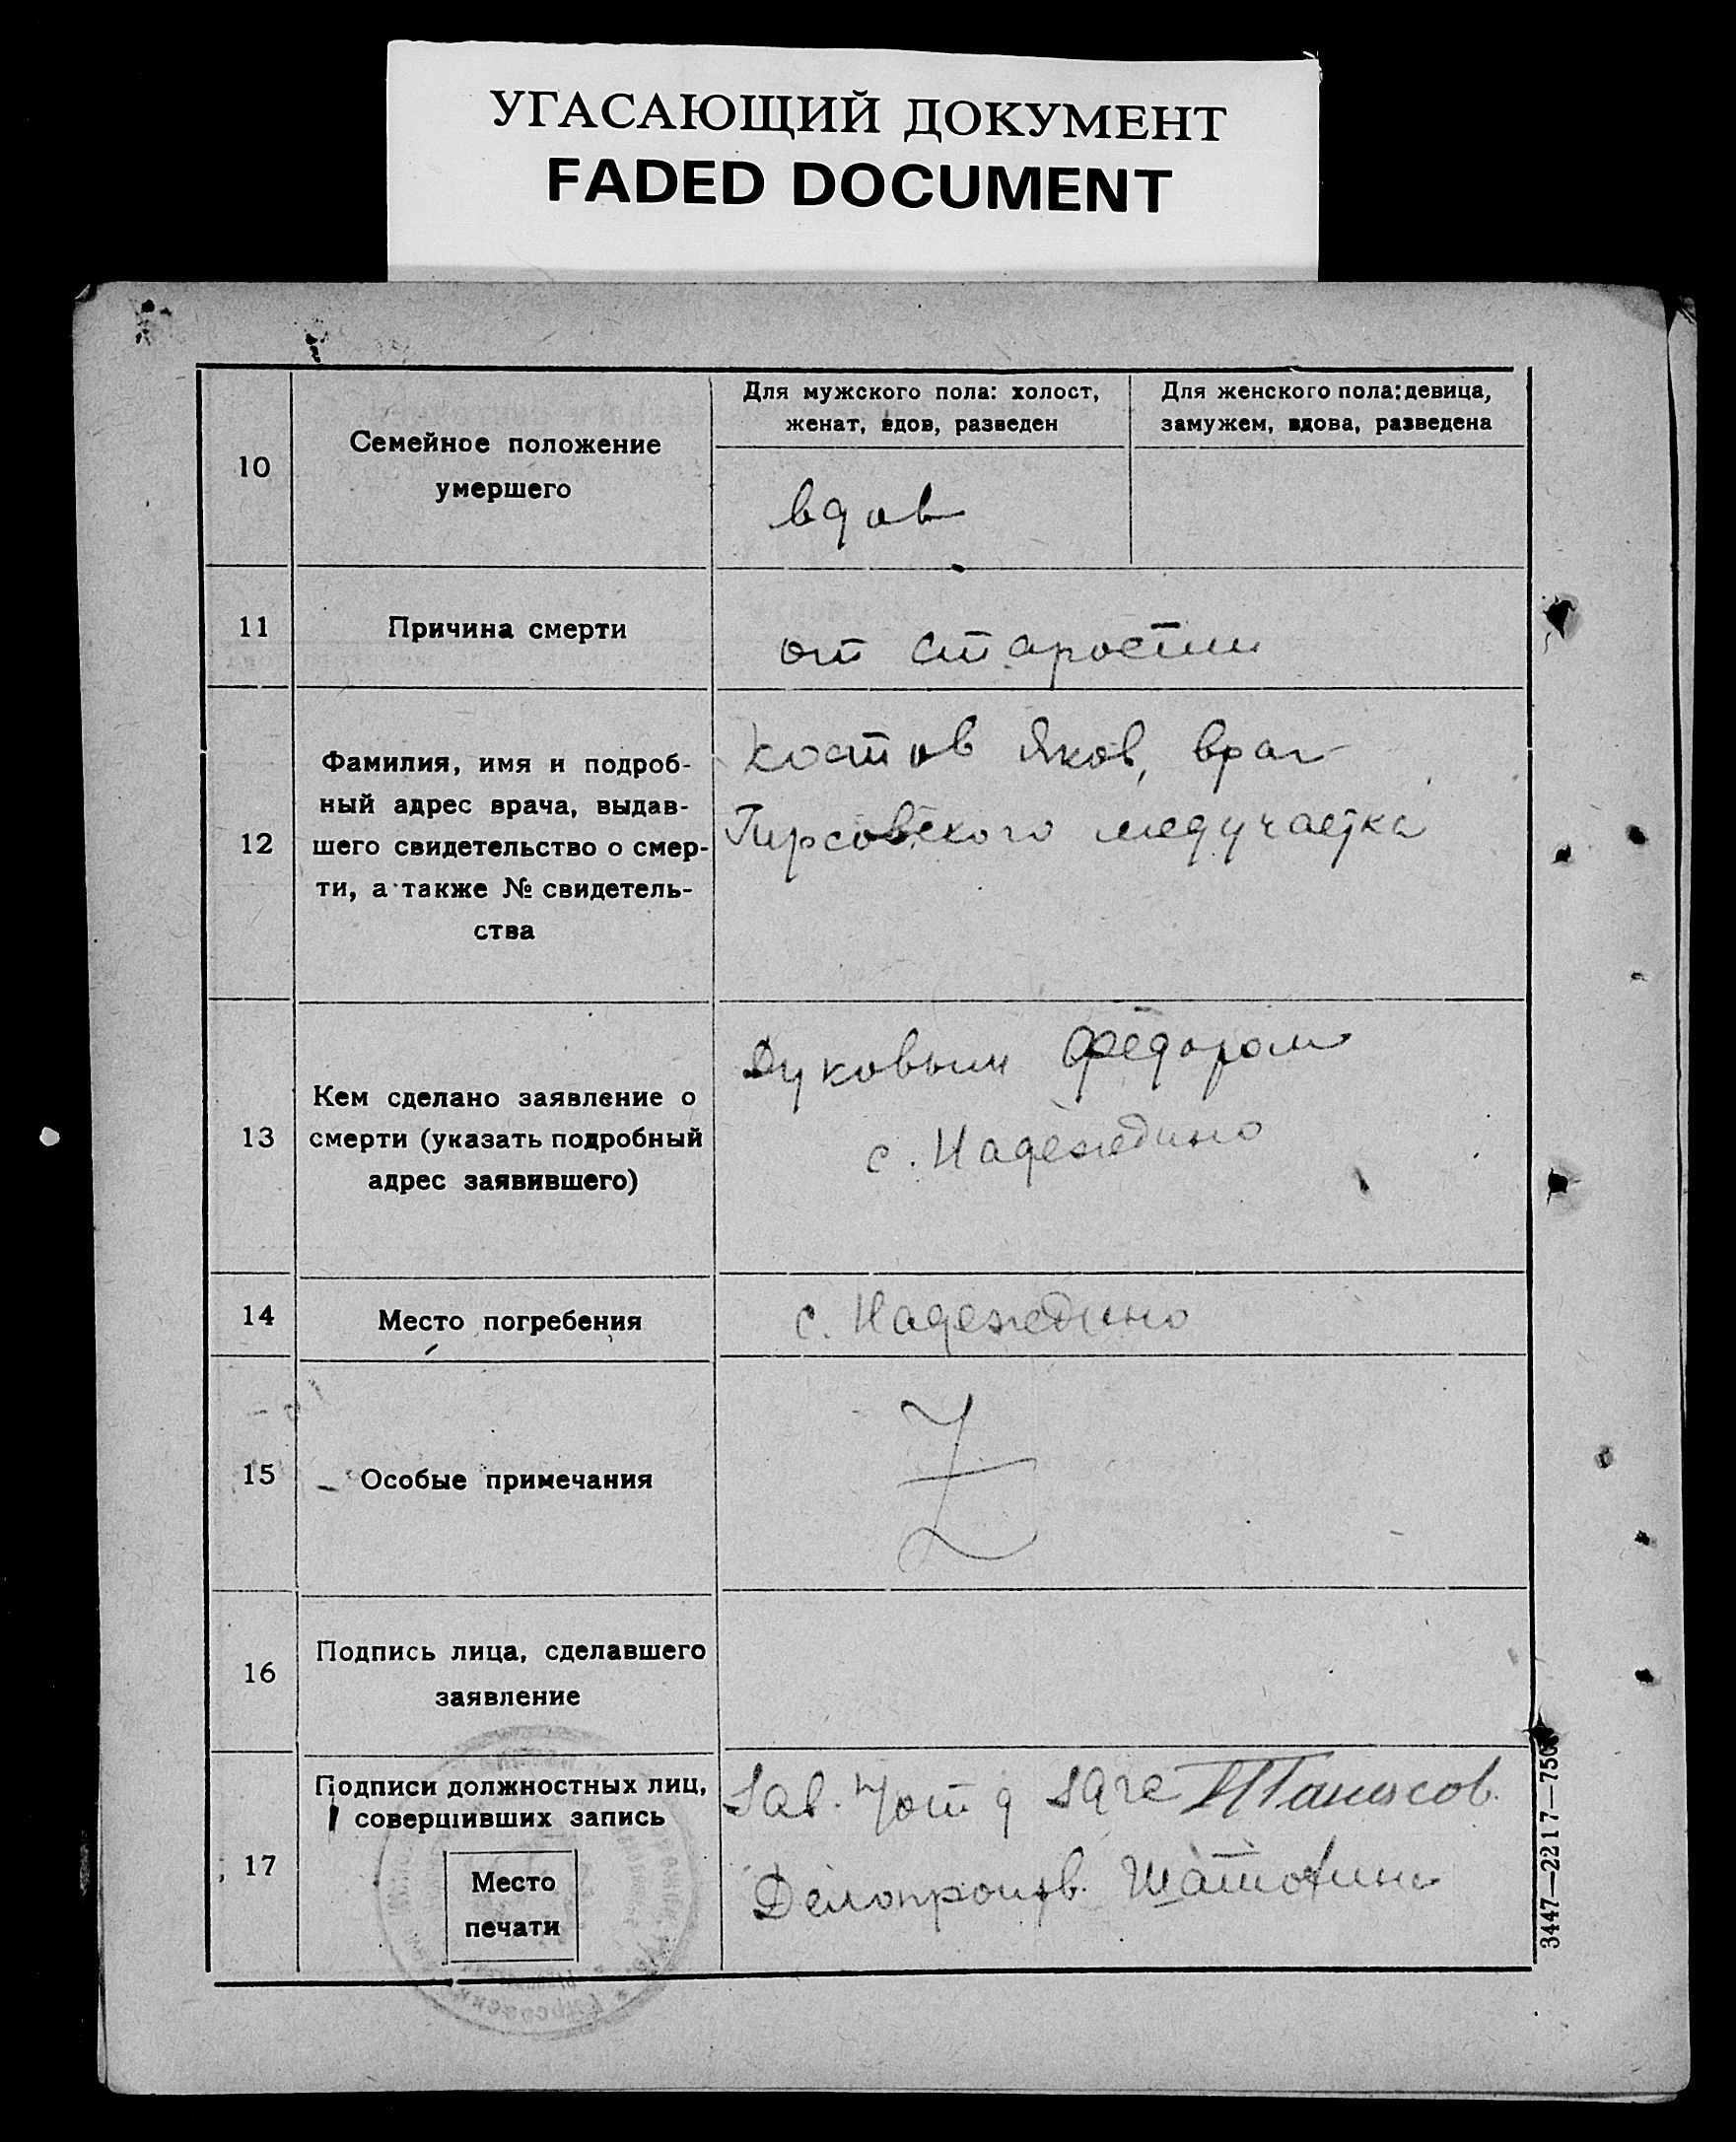 УГАСАЮЩИЙ ДОКУМЕНТ
FADED DOCUMENT
10
Семейное положение
умершего
Для мужского пола: холост,
женат, вдов, разведен
Для женского пола: девица,
замужем, вдова, разведена
вдов
11
Причина смерти
от старости
12
Фамилия, имя и подроб-
ный адрес врача, выдав-
шего свидетельство о смер-
ти, а также № свидетель-
ства
Костов Яков, врач
Кирсовского медучастка
13
Кем сделано заявление о
смерти (указать подробный
адрес заявившего)
Дуковым Фёдором
с. Надеждино
14
Место погребения
с. Надеждино
15
Особые примечания
Z
16
Подпись лица, сделавшего
заявление
17
Подписи должностных лиц,
совершивших запись
Место
печати
Зав.
Делопроизв.
3447—2217—750